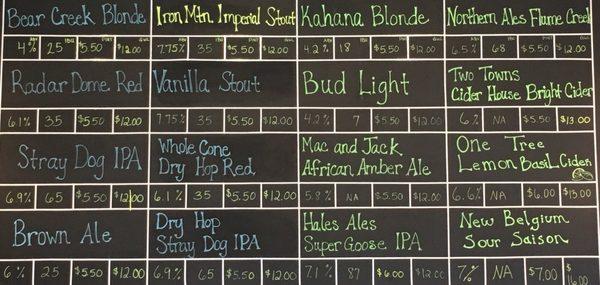 Bear Creek Blonde
4% 25 $5.50 $12.00
Iron Mtn. Imperial Stout
7.75% 35 $5.50 $12.00
Kahana Blonde
4.2% 18 $5.50 $12.00
Northern Ales Flume Creek
6.5% 68 $5.50 $12.00
Radar Dome Red
6.1% 35 $5.50 $12.00
Vanilla Stout
7.75% 35 $5.50 $12.00
Bud Light
4.2% 7 $5.50 $12.00
Two Towns
Cider House Bright Cider
6% NA $5.50 $13.00
Stray Dog IPA
6.9% 65 $5.50 $12.00
Whole Cone
Dry Hop Red
6.1% 35 $5.50 $12.00
Mac and Jack
African Amber Ale
5.8% NA $5.50 $12.00
One Tree
Lemon Basil Cider
6.6% NA $6.00 $13.00
Brown Ale
6% 25 $5.50 $12.00
Dry Hop
Stray Dog IPA
6.9% 65 $5.50 $12.00
Hales Ales
Super Goose IPA
7.1% 87 $6.00 $12.00
New Belgium
Sour Saison
7% NA $7.00 $16.00